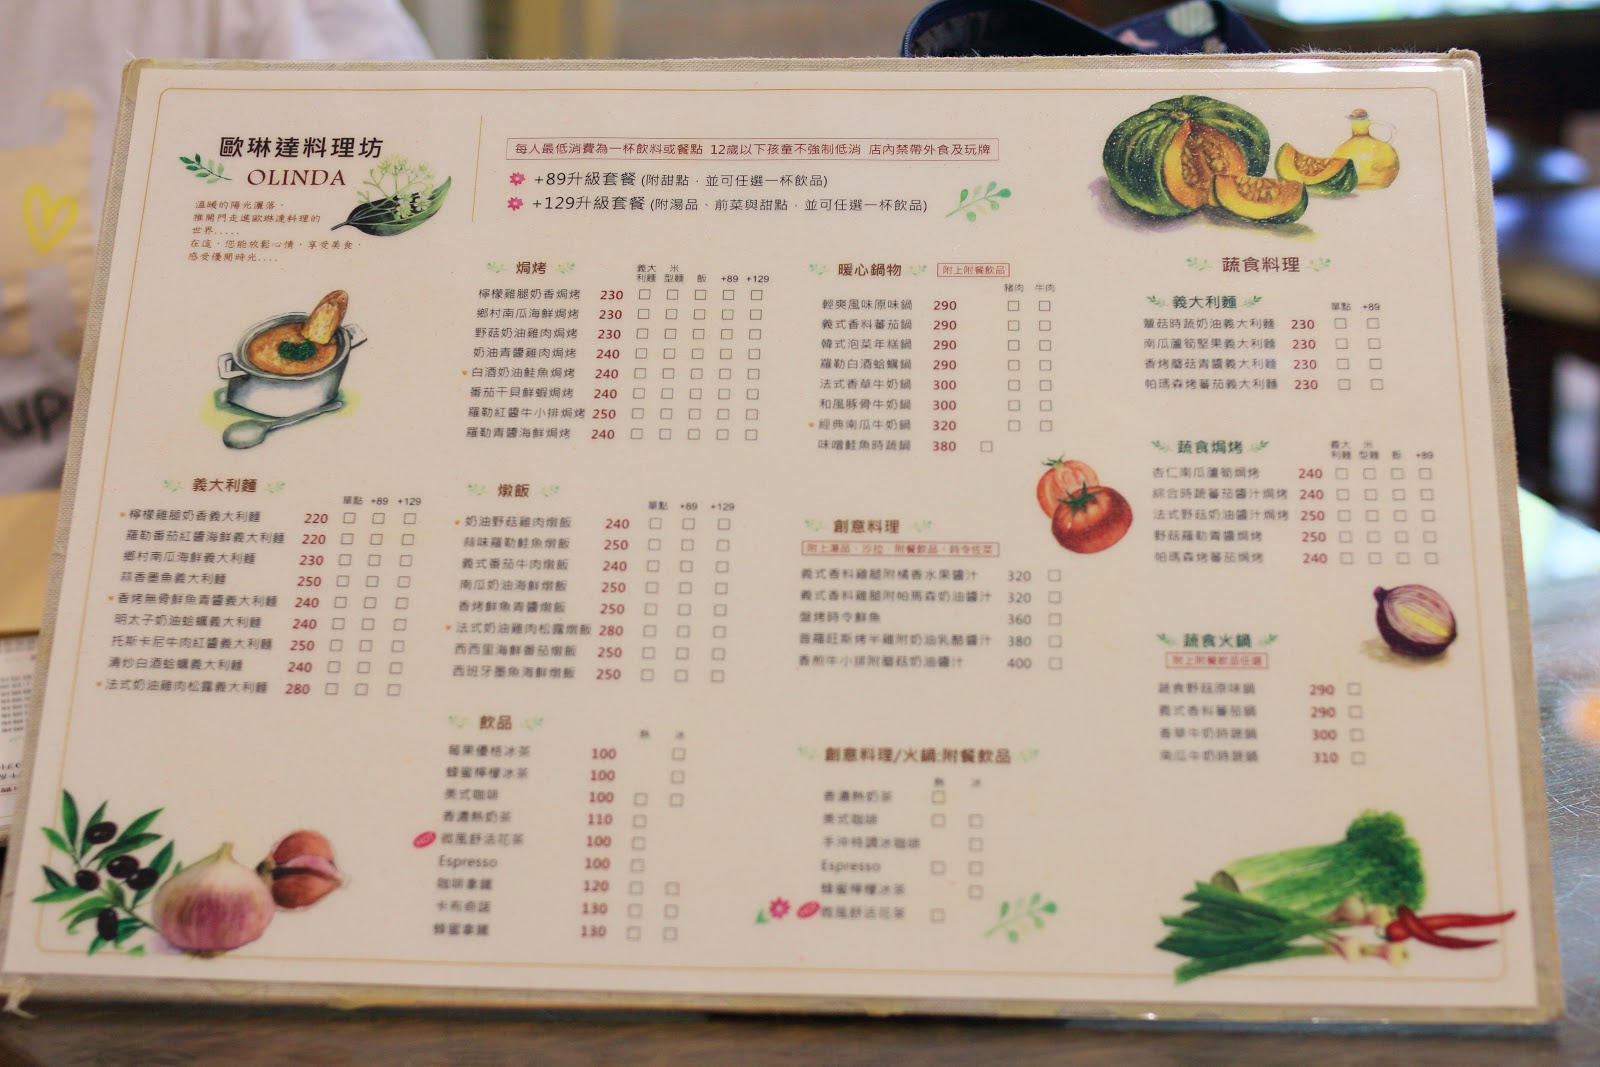 歐琳達料理坊
OLINDA
溫暖的陽光灑落，
推開門走進歐琳達料理的
世界.....
在這，您能放鬆心情，享受美食，
感受優閒時光....
每人最低消費為一杯飲料或餐點 12歲以下孩童不強制低消 店內禁帶外食及玩牌
+89升級套餐 (附甜點，並可任選一杯飲品)
+129升級套餐 (附湯品、前菜與甜點，並可任選一杯飲品)
焗烤
義大利麵 米型麵 飯 +89 +129
檸檬雞腿奶香焗烤 230
鄉村南瓜海鮮焗烤 230
野菇奶油雞肉焗烤 230
奶油青醬雞肉焗烤 240
白酒奶油鮭魚焗烤 240
番茄干貝鮮蝦焗烤 240
羅勒紅醬牛小排焗烤 250
羅勒青醬海鮮焗烤 240
暖心鍋物 附上附餐飲品
豬肉 牛肉
輕爽風味原味鍋 290
義式香料蕃茄鍋 290
韓式泡菜年糕鍋 290
羅勒白酒蛤蠣鍋 290
法式香草牛奶鍋 300
和風豚骨牛奶鍋 300
經典南瓜牛奶鍋 320
味噌鮭魚時蔬鍋 380
蔬食料理
義大利麵
單點 +89
蕈菇時蔬奶油義大利麵 230
南瓜蘆筍堅果義大利麵 230
香烤蘑菇青醬義大利麵 230
帕瑪森烤蕃茄義大利麵 230
蔬食焗烤
義大利麵 米型麵 飯 +89
杏仁南瓜蘆筍焗烤 240
綜合時蔬蕃茄醬汁焗烤 240
法式野菇奶油醬汁焗烤 250
野菇羅勒青醬焗烤 250
帕瑪森烤蕃茄焗烤 240
蔬食火鍋
附上附餐飲品任選
蔬食野菇原味鍋 290
義式香料蕃茄鍋 290
香草牛奶時蔬鍋 300
南瓜牛奶時蔬鍋 310
義大利麵
單點 +89 +129
檸檬雞腿奶香義大利麵 220
羅勒番茄紅醬海鮮義大利麵 220
鄉村南瓜海鮮義大利麵 230
蒜香墨魚義大利麵 250
香烤無骨鮮魚青醬義大利麵 240
明太子奶油蛤蠣義大利麵 240
托斯卡尼牛肉紅醬義大利麵 250
清炒白酒蛤蠣義大利麵 240
法式奶油雞肉松露義大利麵 280
燉飯
單點 +89 +129
奶油野菇雞肉燉飯 240
蒜味羅勒鮭魚燉飯 250
義式番茄牛肉燉飯 240
南瓜奶油海鮮燉飯 250
香烤鮮魚青醬燉飯 250
法式奶油雞肉松露燉飯 280
西西里海鮮番茄燉飯 250
西班牙墨魚海鮮燉飯 250
創意料理
附上湯品、沙拉、附餐飲品、時令佐菜
義式香料雞腿附橘香水果醬汁 320
義式香料雞腿附帕瑪森奶油醬汁 320
盤烤時令鮮魚 360
普羅旺斯烤半雞附奶油乳酪醬汁 380
香煎牛小排附蘑菇奶油醬汁 400
飲品
熱 冰
莓果優格冰茶 100
蜂蜜檸檬冰茶 100
美式咖啡 100
香濃熱奶茶 110
微風舒活花茶 100
Espresso 100
咖啡拿鐵 120
卡布奇諾 130
蜂蜜拿鐵 130
創意料理/火鍋:附餐飲品
熱 冰
香濃熱奶茶
美式咖啡
手沖特調冰咖啡
Espresso
蜂蜜檸檬冰茶
微風舒活花茶
up